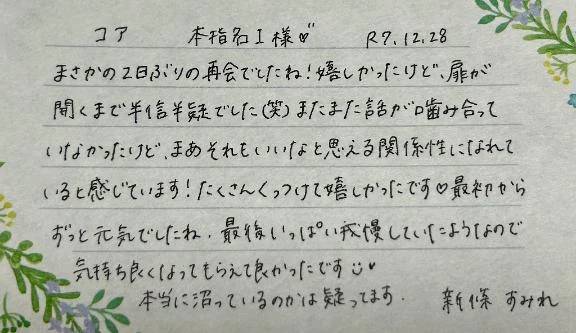 コア 本指名I様♡ R7.12.28
まさかの2日ぶりの再会でしたね！嬉しかったけど、扉が
開くまで半信半疑でした(笑)またまた話が噛み合って
いなかったけど、まあそれもいいなと思える関係性になれて
いると感じています！たくさんくっつけて嬉しかったです♡最初から
ずっと元気でしたね。最後いっぱい我慢していたようなので
気持ち良くなってもらえて良かったです☺♥
本当に沼っているのかは疑ってます. 新條 すみれ